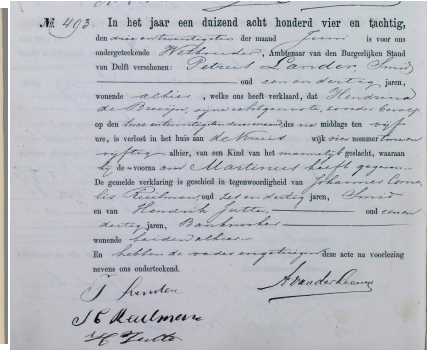 No. 493. In het jaar een duizend acht honderd vier en tachtig,
den drie en twintigsten der maand Juni is voor ons
ondergeteekende Wethouder, Ambtenaar van den Burgerlijken Stand
van Delft verschenen: Petrus Lander, Smid
oud een en dertig, jaren,
wonende alhier, welke ons heeft verklaard, dat Hendrina
de Bruijn, zijne echtgenoote, zonder beroep
op den twee en twintigsten dezer maand des na middags ten vijf
ure, is verlost in het huis aan de wijk vier nommer
vijftig albier, van een Kind van het mannelijk geslacht, waaraan
hij de voornaam Martinus heeft gegeven.
De gemelde verklaring is geschied in tegenwoordigheid van Johannes Corne
lis Reulman, oud zes en dertig jaren, Smid
en van Hendrik Jutte, oud een en
dertig, jaren,
wonende beiden alhier
En hebben de vader en getuigen deze acte na voorlezing
nevens ons onderteekend.
P Lander
A van der Leeuw
J C Reulman
H Jutte